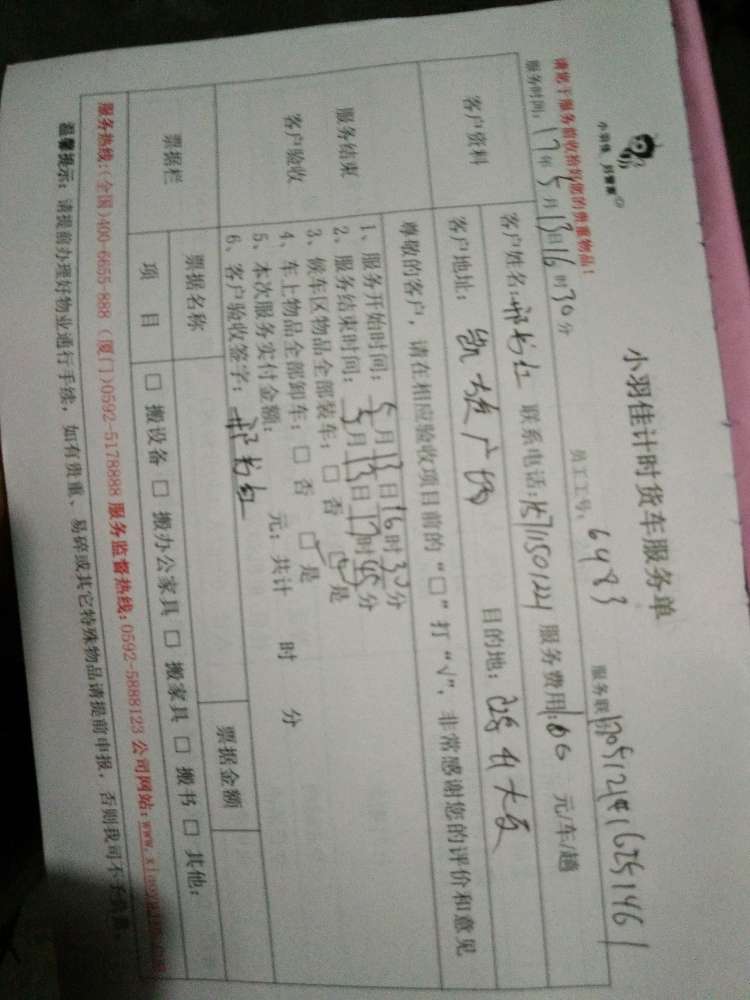 小羽佳 好管家
小羽佳计时货车服务单
请您于服务前收拾好您的贵重物品！
员工工号: 6483
服务联 1705121416251461
服务时间: 17年5月13日16时30分
客户资料
客户姓名: 联系电话: 服务费用: 160 元/车/趟
客户地址: 凯旋广场 目的地:
尊敬的客户，请在相应验收项目前的“□”打“√”，非常感谢您的评价和意见
服务结束
客户验收
1、服务开始时间: 5月13日16时30分
2、服务结束时间: 5月13日17时45分
3、候车区物品全部装车: □ 否 ☑ 是
4、车上物品全部卸车: □ 否 ☑ 是
5、本次服务实付金额: 元; 共计 时 分
6、客户验收签字:
票据栏
票据名称 票据金额
项 目 □ 搬设备 □ 搬办公家具 □ 搬家具 □ 搬书 □ 其他:
服务热线:(全国)400-6655-888 (厦门)0592-5178888 服务监督热线: 0592-5888123 公司网站:
温馨提示: 请提前办理好物业通行手续，如有贵重、易碎或其它特殊物品请提前申报，否则我司不予